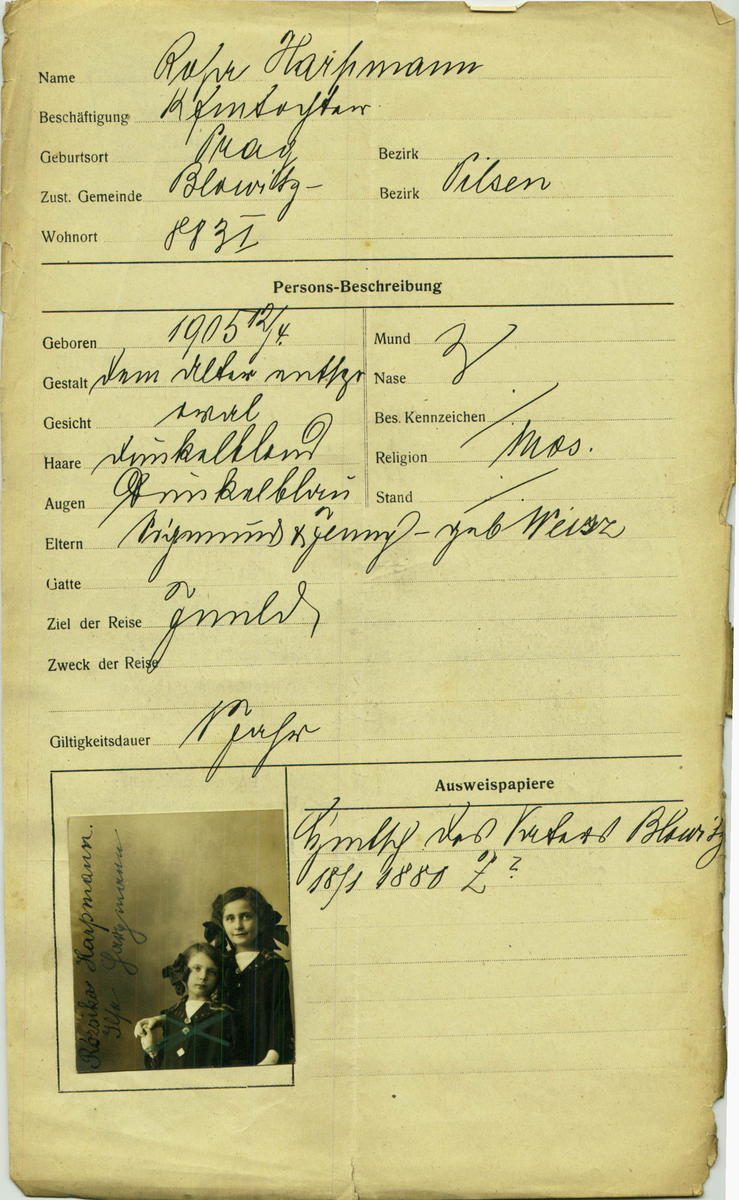 Name Rosa Harpmann
Beschäftigung Kfmtochter
Geburtsort Prag Bezirk
Zust. Gemeinde Blowitz Bezirk Pilsen
Wohnort 883 I
Persons-Beschreibung
Geboren 1905 12/4. Mund
Gestalt dem Alter entspr Nase
Gesicht oval Bes. Kennzeichen /
Haare dunkelblond Religion Mos.
Augen Dunkelblau Stand /
Eltern Sigmund & Jenny – geb Weisz
Gatte
Ziel der Reise Inuld
Zweck der Reise
Giltigkeitsdauer 1 Jahr
Ausweispapiere
des Vaters Blowitz
18/1 1880 Z ?
Rózsika Harpmann.
Ilse Harpmann